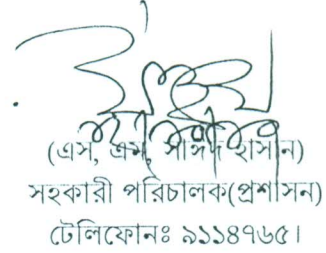 (এস, এম, সাঈদ হাসান)
সহকারী পরিচালক(প্রশাসন)
টেলিফোনঃ ৯১১৪৭৬৫।